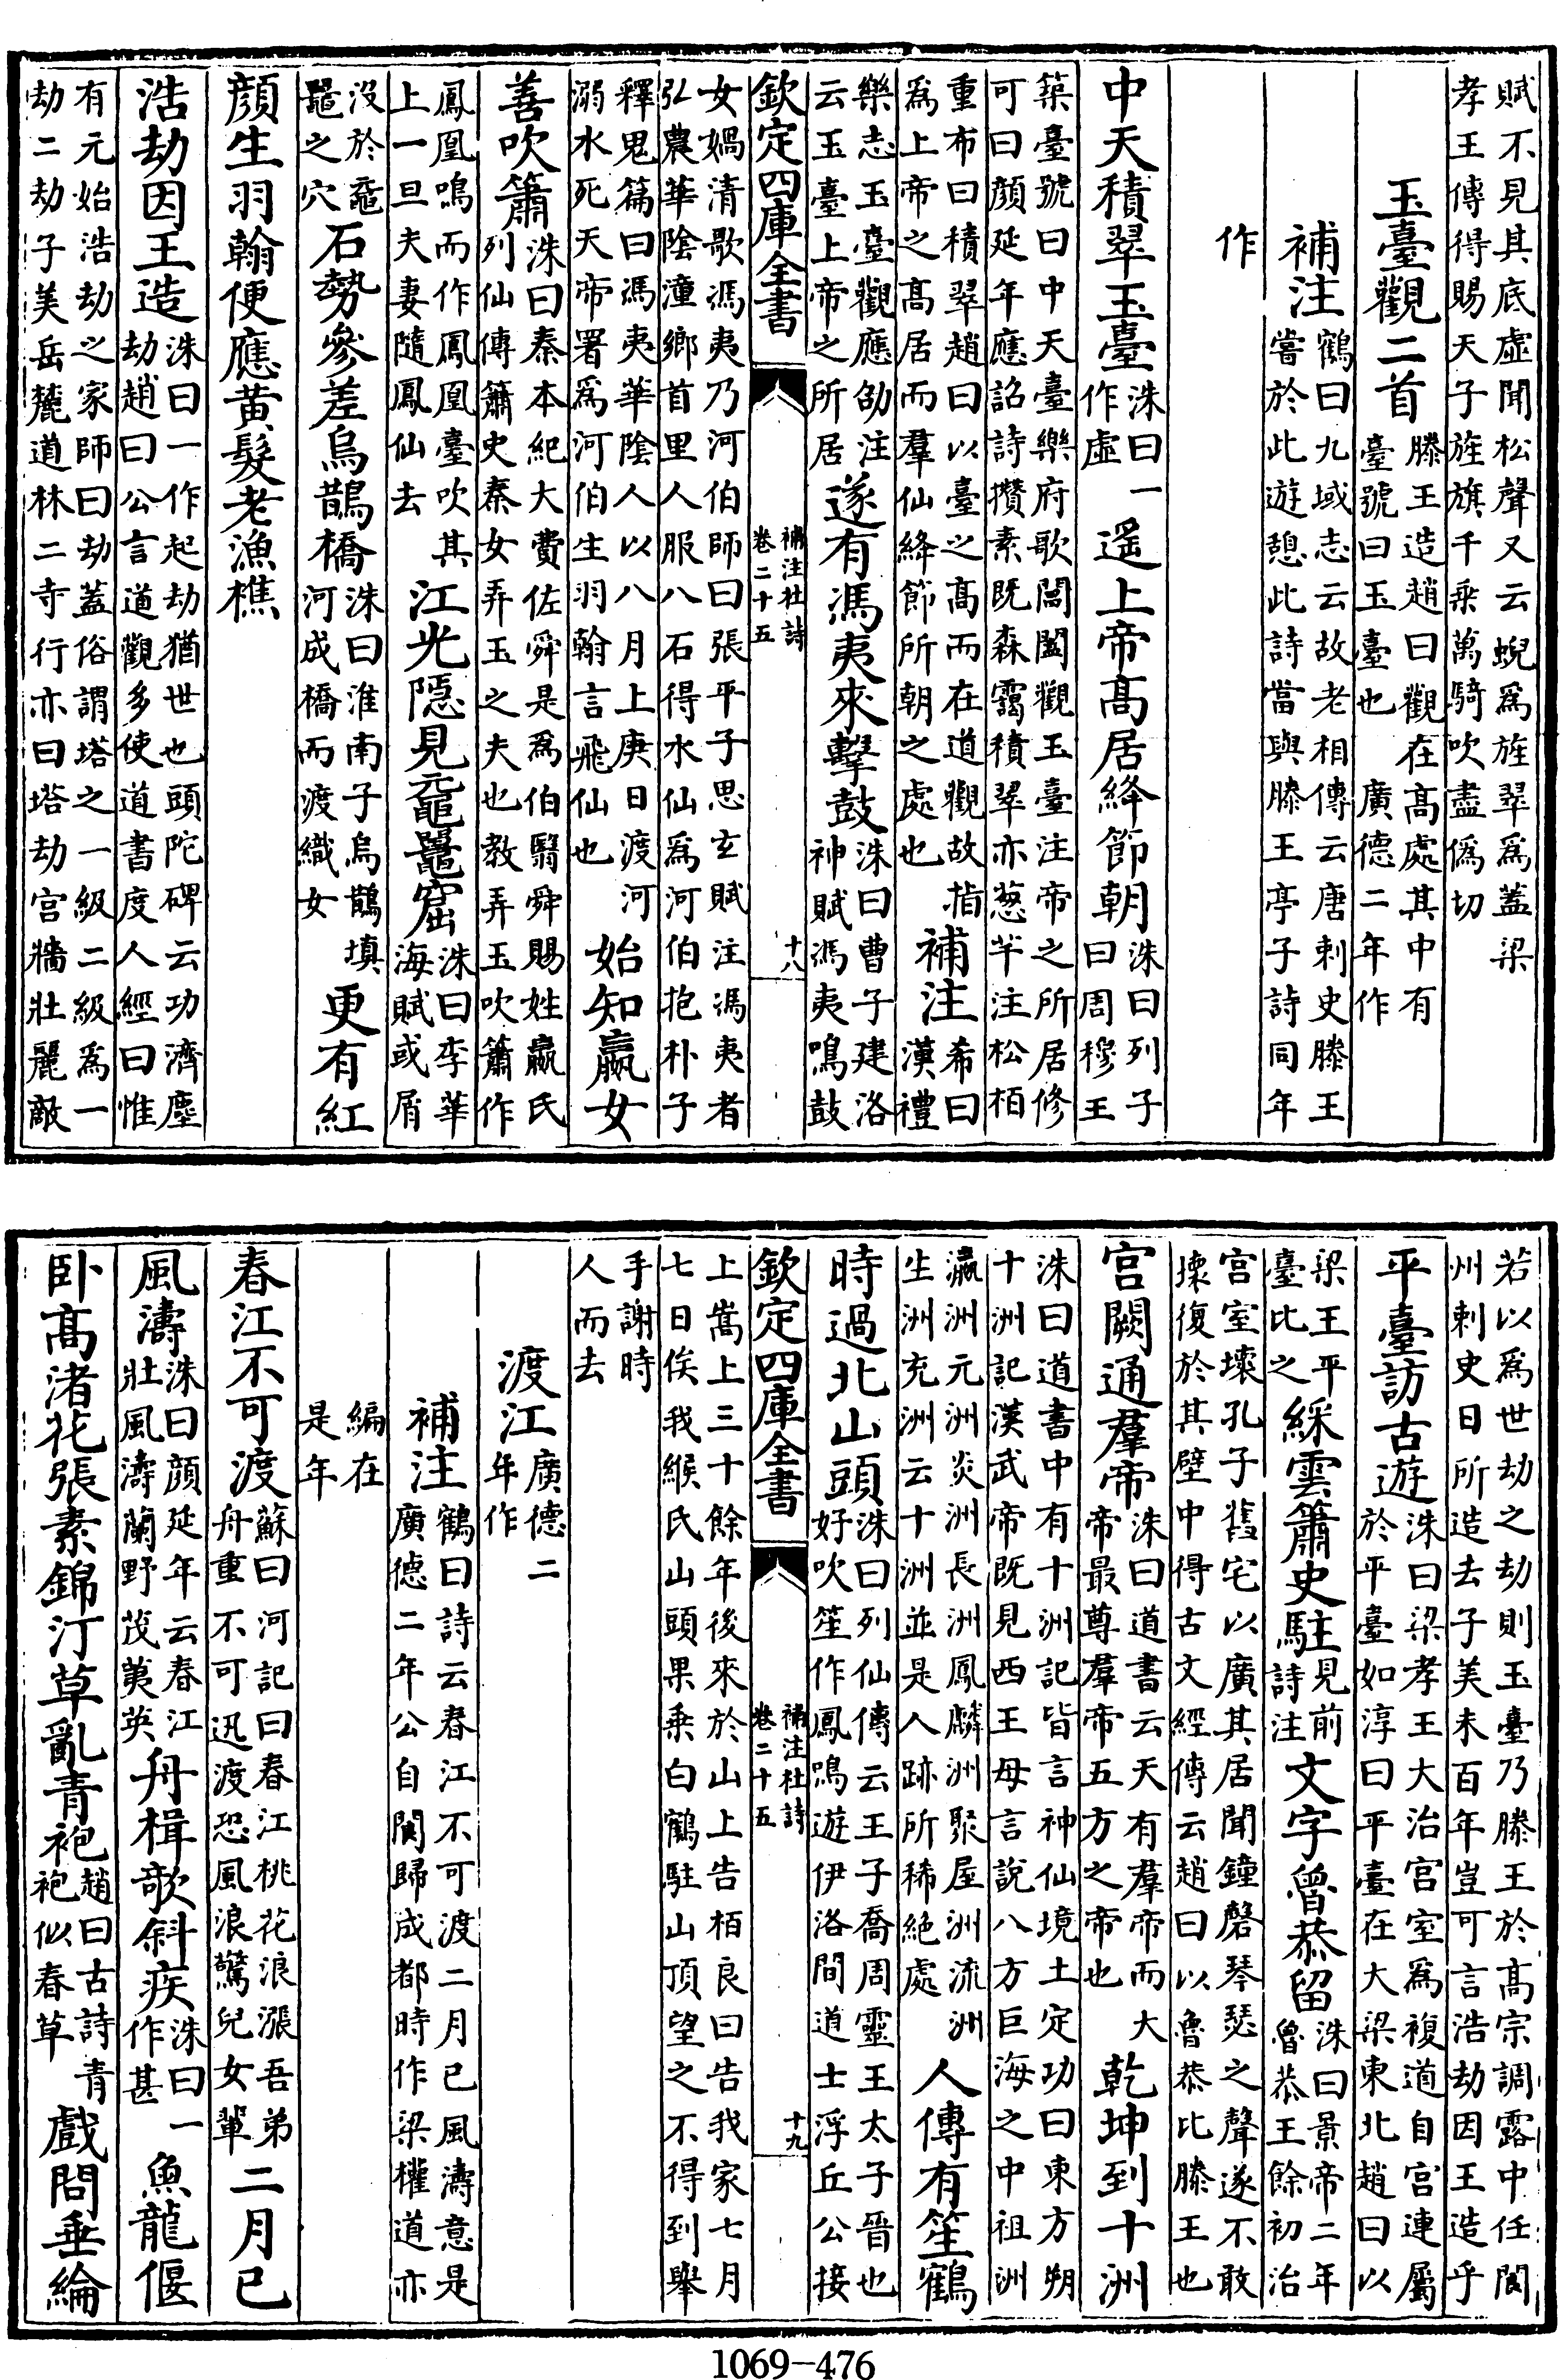 賦不見其底虛聞松聲又云蜺爲旌翠爲蓋梁
孝王傳得賜天子旌旗千乘萬騎吹盡僞切
玉臺觀二首
滕王造趙曰觀在高處其中有
臺號曰玉臺也 廣德二年作
補注
鶴曰九域志云故老相傳云唐刺史滕王
嘗於此遊憩此詩當與滕王亭子詩同年
作
中天積翠玉臺
洙曰一
作虛
遙上帝髙居絳節朝
洙曰列子
曰周穆王
築臺號曰中天臺樂府歌閶闔觀玉臺注帝之所居修
可曰顔延年應詔詩攢素既森靄積翠亦葱芊注松栢
重布曰積翠趙曰以臺之高而在道觀故指
爲上帝之髙居而羣仙絳節所朝之處也
補注
希曰
漢禮
樂志玉臺觀應劭注
云玉臺上帝之所居
遂有馮夷來擊鼓
洙曰曹子建洛
神賦馮夷鳴鼓
欽定四庫全書
補注杜詩
卷二十五
十八
女媧清歌馮夷乃河伯師曰張平子思玄賦注馮夷者
弘農華陰潼鄉首里人服八石得水仙爲河伯抱朴子
釋鬼篇曰馮夷華陰人以八月上庚日渡河
溺水死天帝署爲河伯生羽翰言飛仙也
始知嬴女
善吹簫
洙曰秦本紀大費佐舜是爲伯翳舜賜姓嬴氏
列仙傳簫史秦女弄玉之夫也教弄玉吹簫作
鳳凰鳴而作鳳凰臺吹其
上一旦夫妻隨鳳仙去
江光隱見黿鼉窟
洙曰李華
海賦或屑
没於黿
鼉之穴
石勢參差烏鵲橋
洙曰淮南子烏鵲填
河成橋而渡織女
更有紅
顔生羽翰便應黄髮老漁樵
浩劫因王造
洙曰一作起劫猶世也頭陀碑云功濟塵
劫趙曰公言道觀多使道書度人經曰惟
有元始浩劫之家師曰劫蓋俗謂塔之一級二級爲一
劫二劫子美岳麓道林二寺行亦曰塔劫宮牆壯麗敵
若以爲世劫之劫則玉臺乃滕王於髙宗調露中任閬
州刺史日所造去子美未百年豈可言浩劫因王造乎
平臺訪古遊
洙曰梁孝王大治宮室爲複道自宮連屬
於平臺如淳曰平臺在大梁東北趙曰以
梁王平
臺比之
綵雲簫史駐
見前
詩注
文字魯恭留
洙曰景帝二年
魯恭王餘初治
宮室壞孔子舊宅以廣其居聞鐘磬琴瑟之聲遂不敢
壞復於其壁中得古文經傳云趙曰以魯恭比滕王也
宮闕通羣帝
洙曰道書云天有羣帝而大
帝最尊羣帝五方之帝也
乾坤到十洲
洙曰道書中有十洲記皆言神仙境土定功曰東方朔
十洲記漢武帝既見西王母言說八方巨海之中祖洲
瀛洲元洲炎洲長洲鳳麟洲聚屋洲流洲
生洲充洲云十洲並是人跡所稀絕處
人傳有笙鶴
時過北山頭
洙曰列仙傳云王子喬周靈王太子晉也
好吹笙作鳳鳴遊伊洛間道士浮丘公接
欽定四庫全書
補注杜詩
卷二十五
十九
上嵩上三十餘年後來於山上告栢良曰告我家七月
七日俟我緱氏山頭果乘白鶴駐山頂望之不得到舉
手謝時
人而去
渡江
廣德二
年作
補注
鶴曰詩云春江不可渡二月已風濤意是
廣德二年公自閬歸成都時作梁權道亦
編在
是年
春江不可渡
蘇曰河記曰春江桃花浪漲吾弟
舟重不可迅渡恐風浪驚兒女輩
二月已
風濤
洙曰顔延年云春江
壯風濤蘭野茂荑英
舟楫欹斜疾
洙曰一
作甚
魚龍偃
卧高渚花張素錦汀草亂青袍
趙曰古詩青
袍似春草
戲問垂綸
1069-476